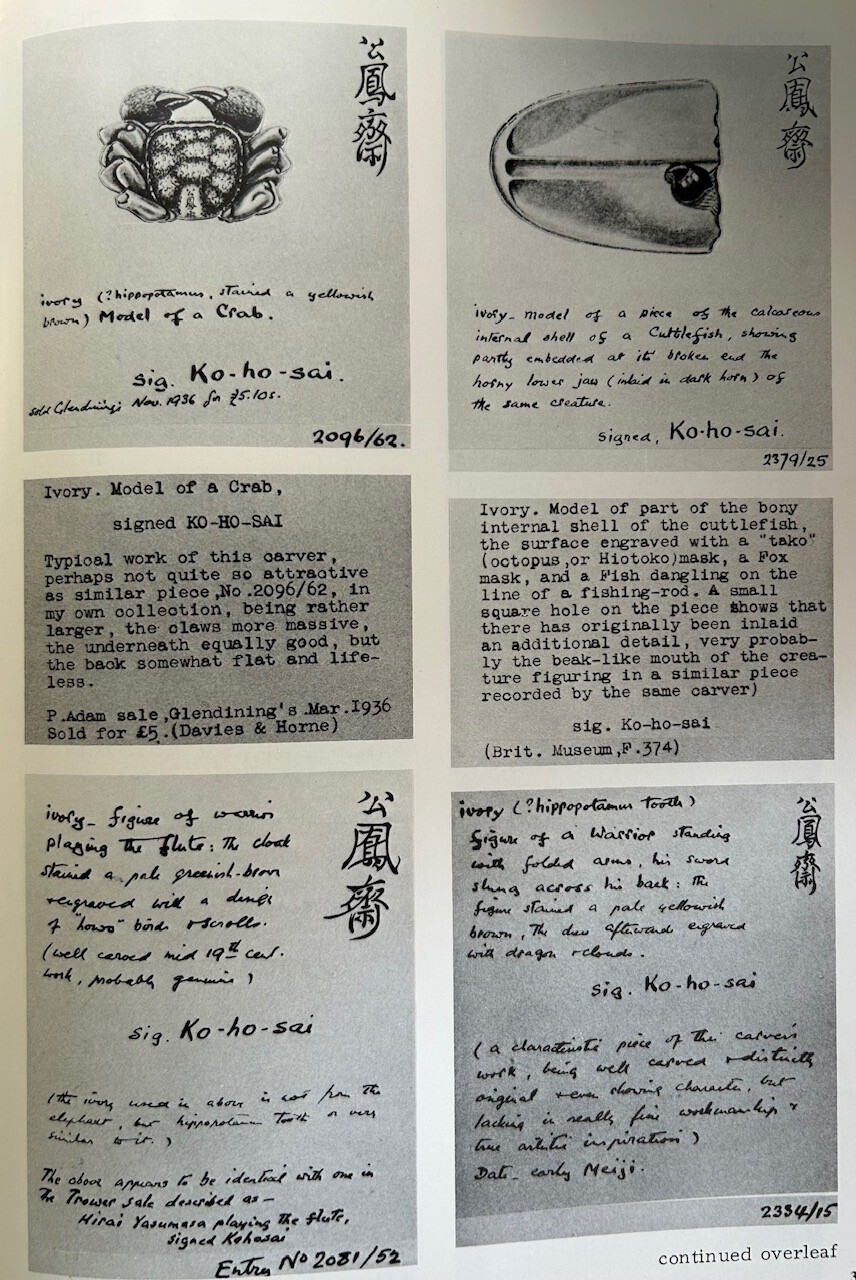 公鳳齋
ivory (?hippopotamus, stained a yellowish
brown) Model of a Crab.
sig. Ko-ho-sai.
sold Glendining's Nov. 1936 for £5.10s.
2096/62.
Ivory. Model of a Crab,
signed KO-HO-SAI
Typical work of this carver,
perhaps not quite so attractive
as similar piece,No.2096/62, in
my own collection, being rather
larger, the claws more massive,
the underneath equally good, but
the back somewhat flat and life-
less.
P.Adam sale,Glendining's.Mar.1936
Sold for £5.(Davies & Horne)
公鳳齋
ivory_ figure of warrior
playing the flute: The cloak
stained a pale greenish-brown
& engraved with a design
of "howo" birds & scrolls.
(well carved mid 19th cent.
work, probably genuine)
sig. Ko-ho-sai
(the ivory used in above is not from the
elephant, but hippopotamus tooth or very
similar to it.)
The above appears to be identical with one in
The Trower Sale described as—
Hirai Yasumasa playing the flute,
signed Kohosai
Entry No 2081/52
公鳳齋
ivory_ model of a piece of the calcareous
internal shell of a Cuttlefish, showing
partly embedded at its broken end the
horny lower jaw (inlaid in dark horn) of
the same creature.
signed, Ko-ho-sai.
2379/25
Ivory. Model of part of the bony
internal shell of the cuttlefish,
the surface engraved with a "tako"
(octopus,or Hiotoko)mask, a Fox
mask, and a Fish dangling on the
line of a fishing-rod. A small
square hole on the piece shows that
there has originally been inlaid
an additional detail, very probab-
ly the beak-like mouth of the crea-
ture figuring in a similar piece
recorded by the same carver)
sig. Ko-ho-sai
(Brit. Museum,F.374)
公鳳齋
ivory (?hippopotamus tooth)
figure of a Warrior standing
with folded arms, his sword
slung across his back: The
figure stained a pale yellowish
brown, The dress afterward engraved
with dragon & clouds.
sig. Ko-ho-sai
(a characteristic piece of this carver's
work, being well carved & distinctly
original & even showing character, but
lacking in really fine workmanship &
true artistic inspiration)
Date_ early Meiji.
2334/15
continued overleaf